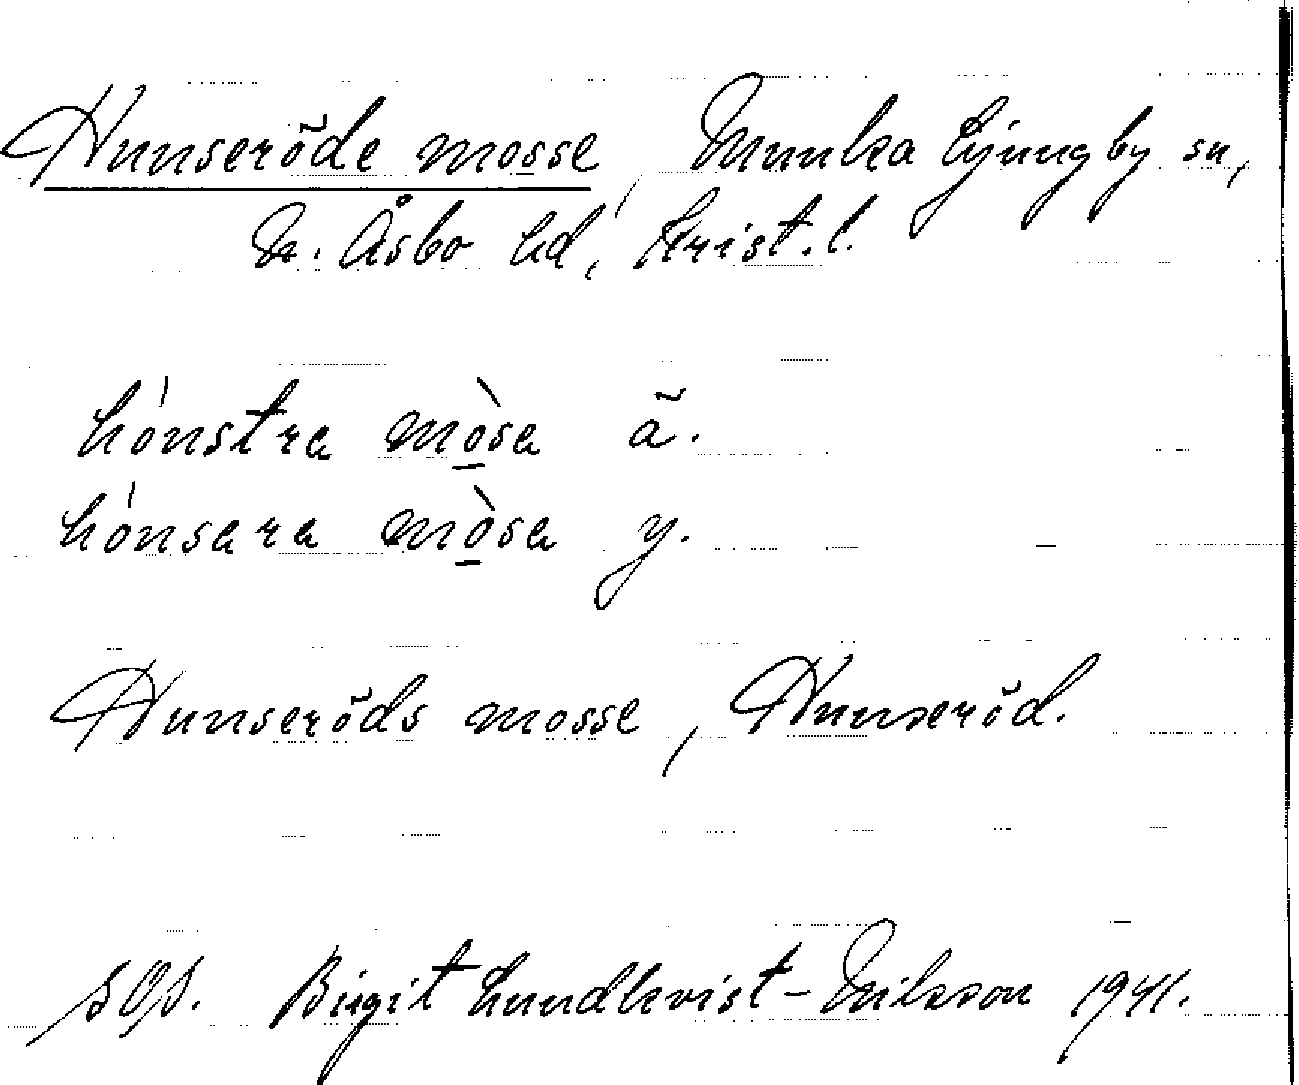 Hunseröde mosse, Munka Ljungby sn,
N. Åsbo hd, Krist. l.
hónstra mòsa ä.
hónsara mòsa y.
Hunseröds mosse, Hunseröd.
SOS. Birgit Lundkvist-Nilsson 1941.